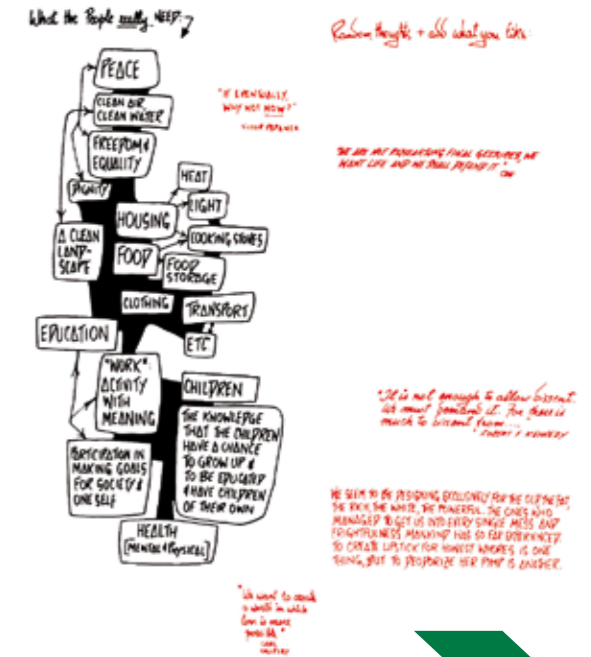 What the People really NEED:
PEACE
CLEAN AIR
CLEAN WATER
FREEDOM &
EQUALITY
DIGNITY
HEAT
LIGHT
HOUSING
COOKING STOVES
A CLEAN
LAND-
SCAPE
FOOD
FOOD
STORAGE
CLOTHING
TRANSPORT
ETC
EDUCATION
"WORK":
ACTIVITY
WITH
MEANING
CHILDREN
THE KNOWLEDGE
THAT THE CHILDREN
HAVE A CHANCE
TO GROW UP &
TO BE EDUCATED
& HAVE CHILDREN
OF THEIR OWN
PARTICIPATION IN
MAKING GOALS
FOR SOCIETY &
ONE SELF
HEALTH
[MENTAL & PHYSICAL]
Random thoughts + add what you like:
"IF EVENTUALLY,
WHY NOT NOW?"
WE ARE NOT FINAL GESTURES, WE
WANT LIFE AND WE SHALL DEFEND IT"
"It is not enough to allow dissent.
We must demand it. For there is
much to dissent from...
ROBERT F KENNEDY
WE SEEM TO BE DESIGNING EXCLUSIVELY FOR THE OLD, THE FAT,
THE RICH, THE WHITE, THE POWERFUL. THE ONES WHO
MANAGED TO GET US INTO EVERY SINGLE MESS AND
FRIGHTFULNESS MANKIND HAS SO FAR EXPERIENCED.
TO CREATE LIPSTICK FOR HONEST WHORES IS ONE
THING, BUT TO DEODORIZE HER PIMP IS ANOTHER.
"We want to create
a world in which
love is more
possible"
CARL